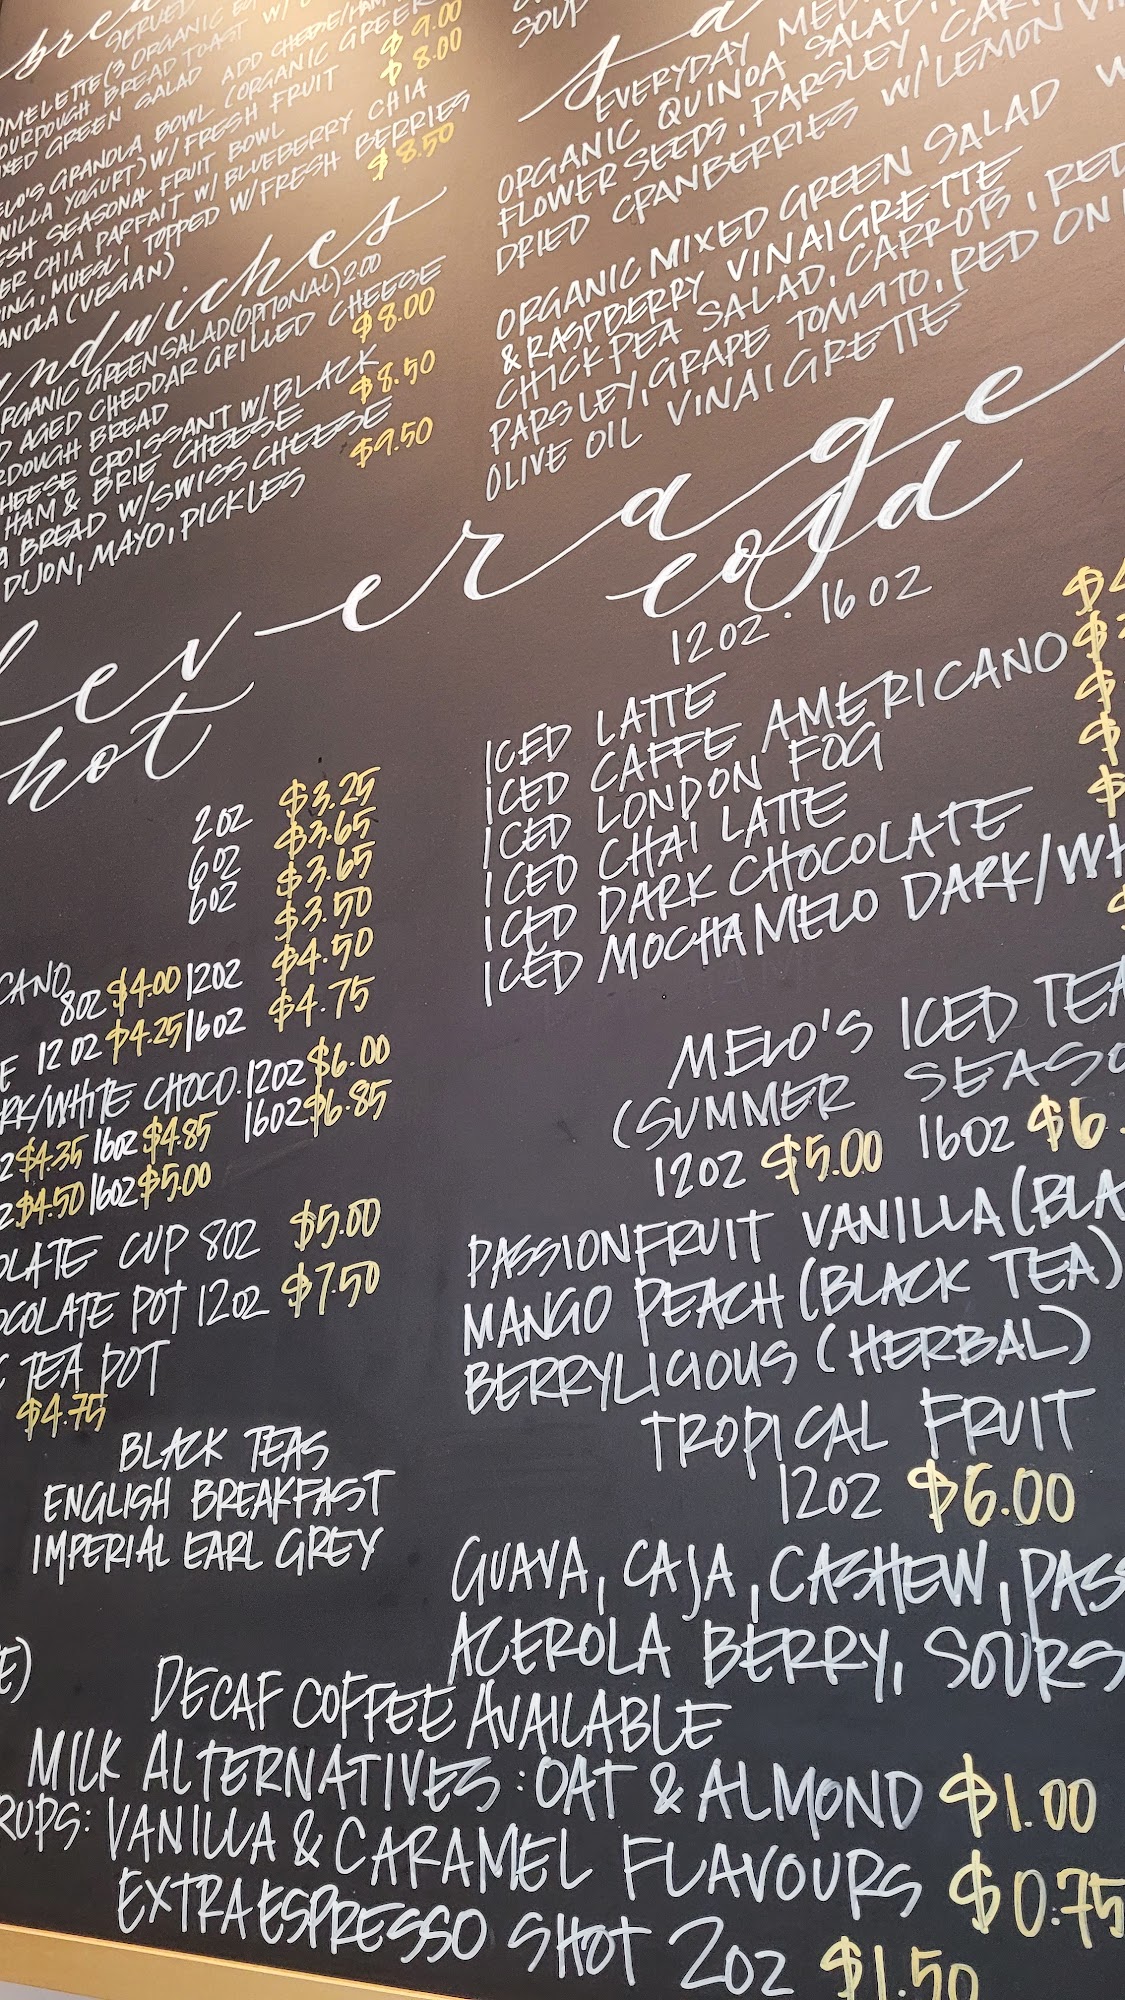 SERVED
OMELETTE (3 ORGANIC
SOURDOUGH BREAD TOAST W/
MIXED GREEN SALAD ADD CHEESE/HAM
$9.00
MELO'S GRANOLA BOWL (ORGANIC GREEK
VANILLA YOGURT) W/FRESH FRUIT $8.00
FRESH SEASONAL FRUIT BOWL
CHIA PARFAIT W/BLUEBERRY CHIA
MUESLI TOPPED W/FRESH BERRIES
(VEGAN) $8.50
ndwiches
RGANIC GREEN SALAD (OPTIONAL) 2.00
D AGED CHEDDAR GRILLED CHEESE
RDOUGH BREAD $8.00
HEESE CROISSANT W/BLACK
HAM & BRIE CHEESE $8.50
A BREAD W/SWISS CHEESE
DIJON, MAYO, PICKLES $9.50
SOUP
EVERYDAY
ORGANIC QUINOA SALAD,
FLOWER SEEDS, PARSLEY,
DRIED CRANBERRIES W/LEMON
ORGANIC MIXED GREEN SALAD W
& RASPBERRY VINAIGRETTE
CHICKPEA SALAD, CARROTS, RED
PARSLEY, GRAPE TOMATO, RED ON
OLIVE OIL VINAIGRETTE
beverage
hot
2OZ $3.25
6OZ $3.65
6OZ $3.65
$3.50
CANO 8OZ $4.00 12OZ $4.50
E 12OZ $4.25 16OZ $4.75
RK/WHITE CHOCO. 12OZ $6.00
$4.35 16OZ $4.85 16OZ $6.85
$4.50 16OZ $5.00
OLATE CUP 8OZ $5.00
OCOLATE POT 12OZ $7.50
C TEA POT
$4.75
BLACK TEAS
ENGLISH BREAKFAST
IMPERIAL EARL GREY
E)
cold
12OZ · 16OZ
ICED LATTE
ICED CAFFE AMERICANO
ICED LONDON FOG
ICED CHAI LATTE
ICED DARK CHOCOLATE
ICED MOCHAMELO DARK/WH
MELO'S ICED TEA
(SUMMER SEASO
12OZ $5.00 16OZ $6.
PASSIONFRUIT VANILLA (BLA
MANGO PEACH (BLACK TEA)
BERRYLICIOUS (HERBAL)
TROPICAL FRUIT
12OZ $6.00
GUAVA, CAJA, CASHEW, PAS
ACEROLA BERRY, SOURS
DECAF COFFEE AVAILABLE
MILK ALTERNATIVES: OAT & ALMOND $1.00
RUPS: VANILLA & CARAMEL FLAVOURS $0.75
EXTRA ESPRESSO SHOT 2OZ $1.50